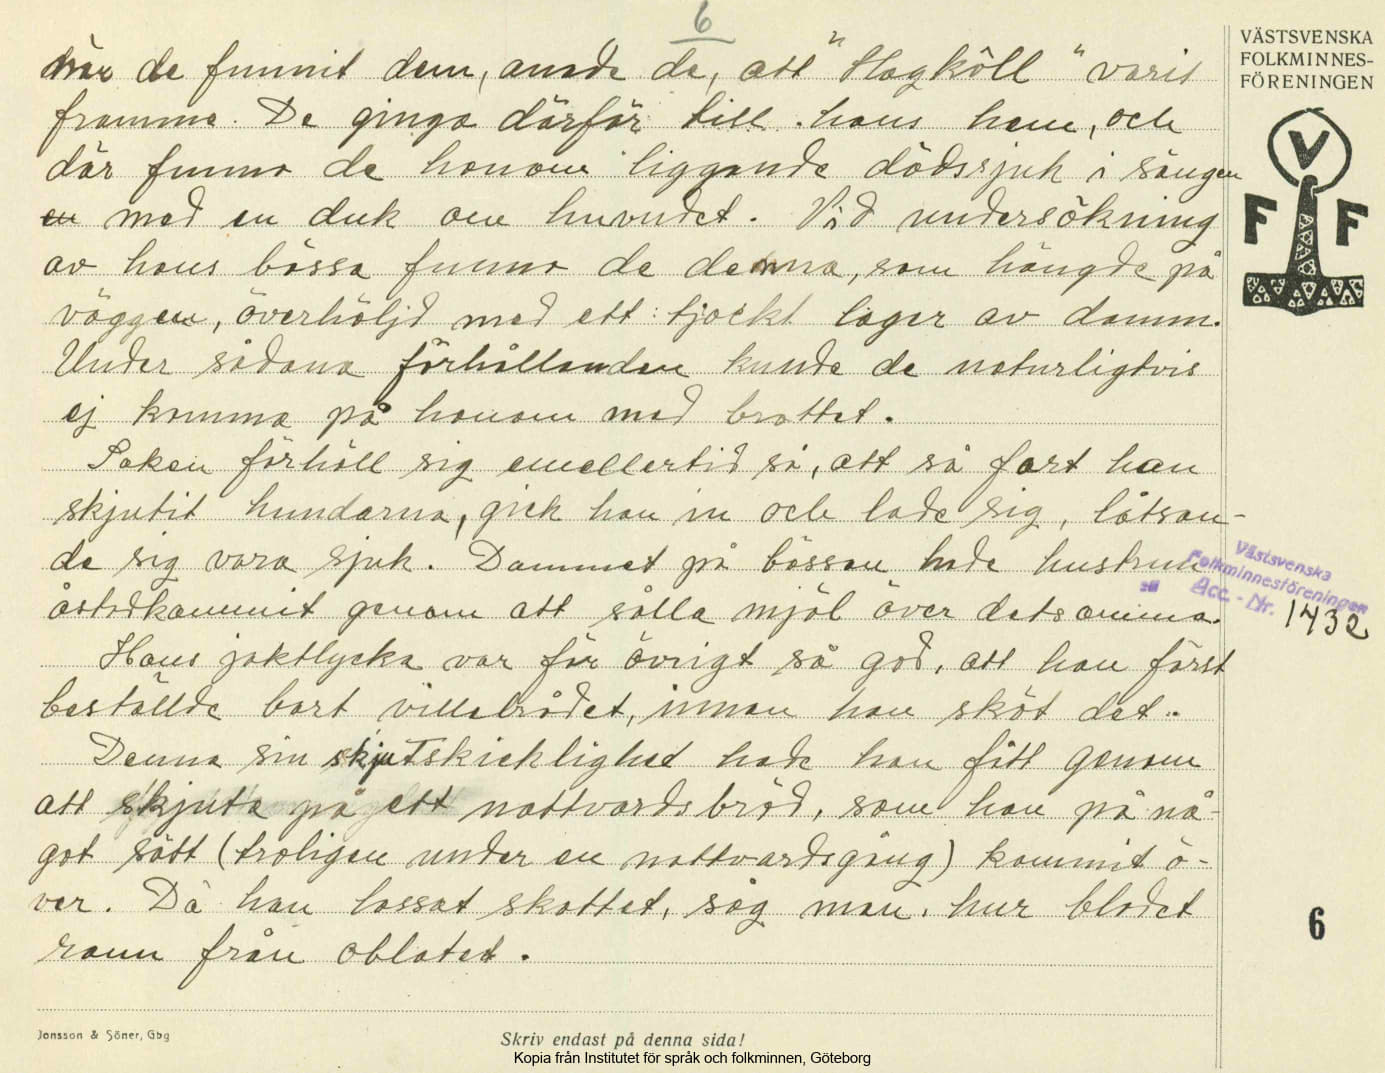 6
när de funnit dem, anade de, att "Hagköll" varit
framme. De gingo därför till hans hem, och
där funno de honom liggande dödssjuk i sängen
en med en duk om huvudet. Vid undersökning
av hans bössa funno de denna, som hängde på
väggen, överhöljd med ett tjockt lager av damm.
Under sådana förhållanden kunde de naturligtvis
ej komma på honom med brottet.
Saken förhöll sig emellertid så, att så fort han
skjutit hundarna, gick han in och lade sig, låtsan-
de sig vara sjuk. Dammet på bössan hade hustrun
åstadkommit genom att sålla mjöl över detsamma.
Hans jaktlycka var för övrigt så god, att han först
beställde bort villebrådet, innan han sköt det.
Denna sin skjutskicklighet hade han fått genom
att skjuta på ett nattvardsbröd, som han på nå-
got sätt (troligen under en nattvardsgång) kommit ö-
ver. Då han lossat skottet, såg man, hur blodet
rann från oblatet.
VÄSTSVENSKA
FOLKMINNES-
FÖRENINGEN
V
F F
Västsvenska
Folkminnesföreningen
Acc. - Nr. 1432
6
Jonsson & Söner, Gbg
Skriv endast på denna sida!
Kopia från Institutet för språk och folkminnen, Göteborg